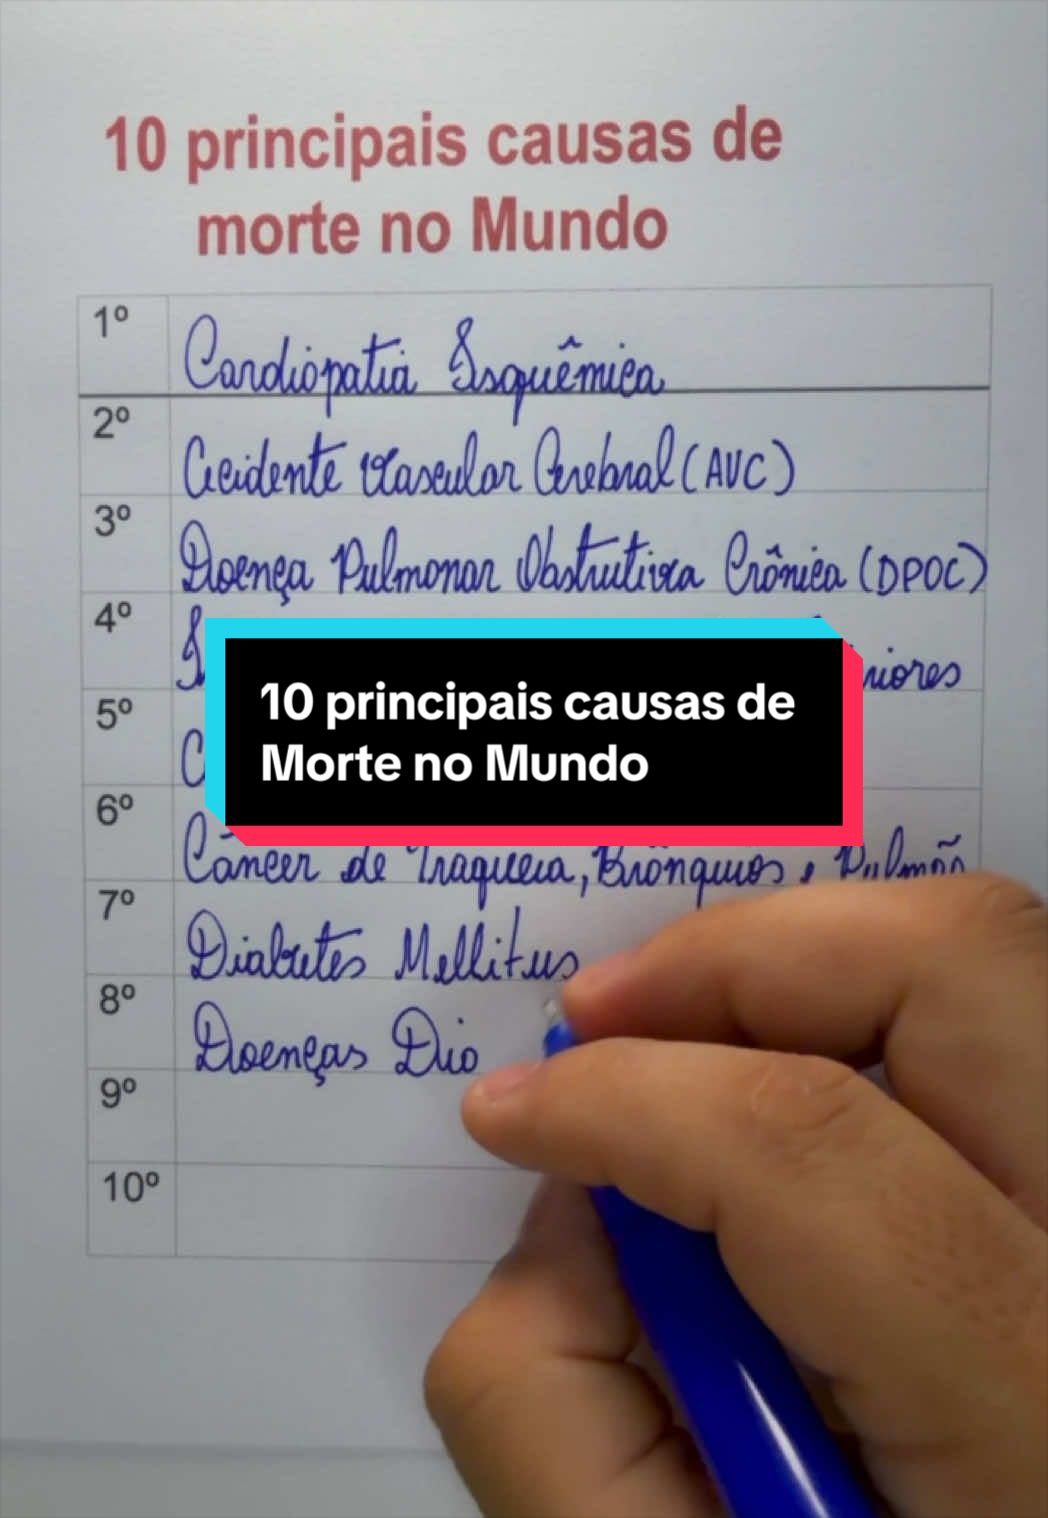 10 principais causas de
morte no Mundo
1º Cardiopatia Isquêmica
2º Acidente Vascular Cerebral (AVC)
3º Doença Pulmonar Obstrutiva Crônica (DPOC)
4º
5º
10 principais causas de
Morte no Mundo
6º Câncer de Traqueia, Brônquios e Pulmão
7º Diabetes Mellitus
8º Doenças Dio
9º
10º